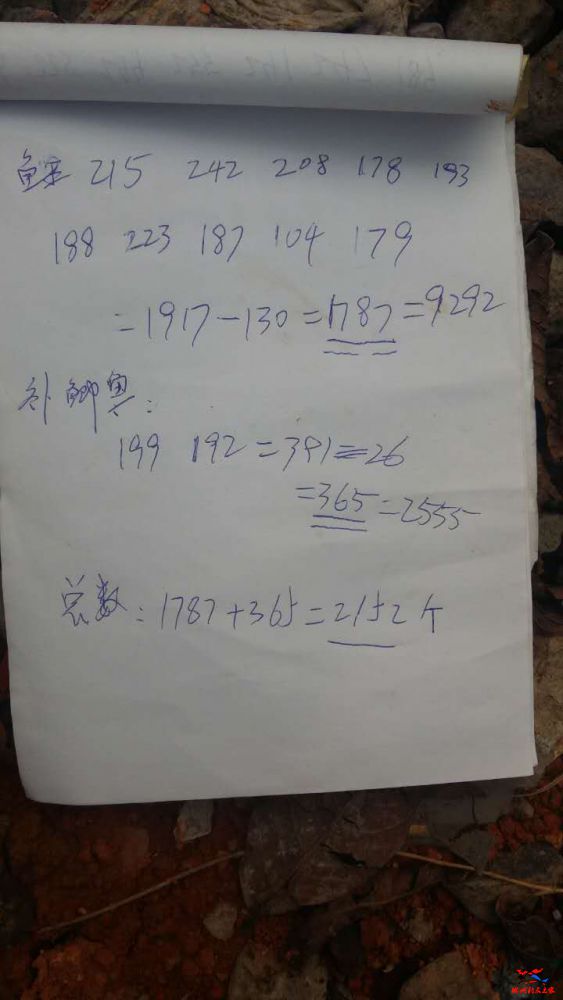 215 242 208 178 193
188 223 187 104 179
=1917-130=1787=9292
补鲫鱼:
199 192=391-26
=365=2555
总数:1787+365=2152个